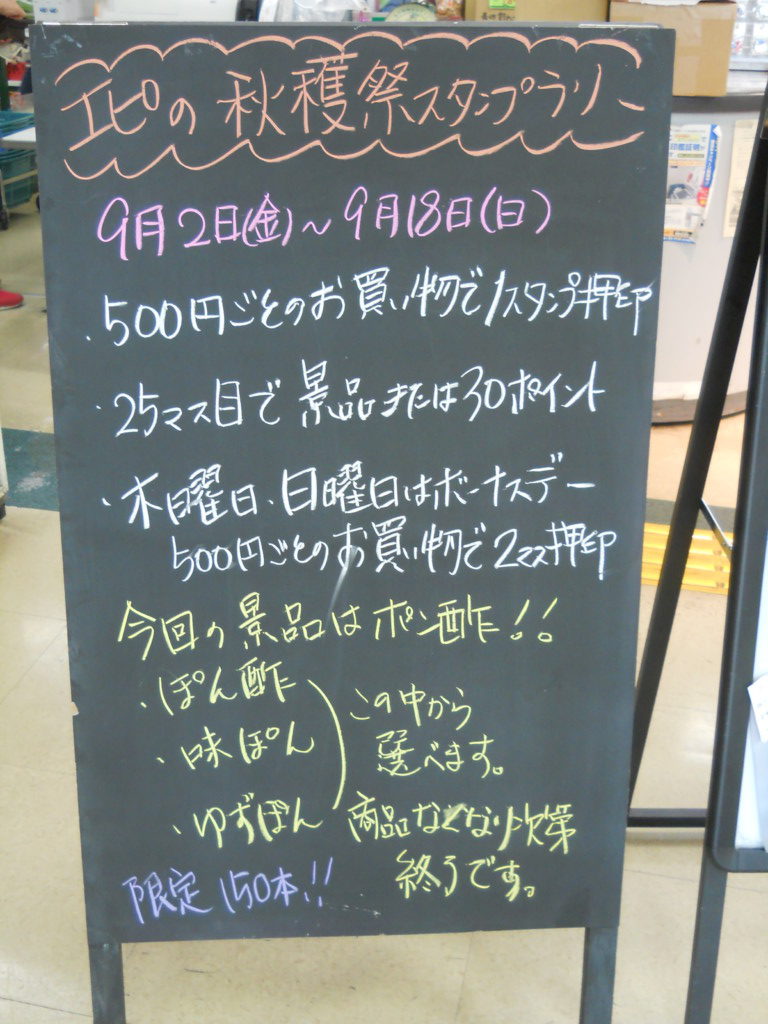 エピの秋穫祭スタンプラリー
9月2日(金)～9月18日(日)
・500円ごとのお買い物で1スタンプ押印
・25マス目で景品または30ポイント
・木曜日、日曜日はボーナスデー
500円ごとのお買い物で2マス押印
今回の景品はポン酢!!
・ぽん酢
・味ぽん
・ゆずぽん
この中から
選べます。
商品なくなり次第
終うです。
限定150本!!